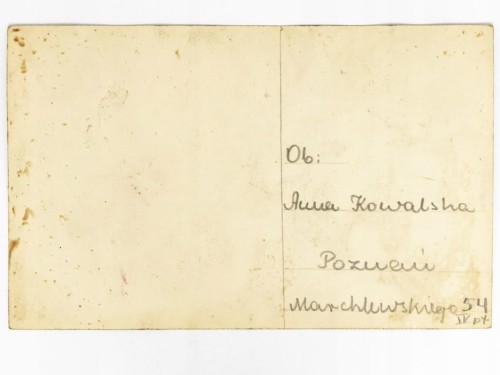 Ob:
Anna Kowalska
Poznań
Marchlewskiego 54